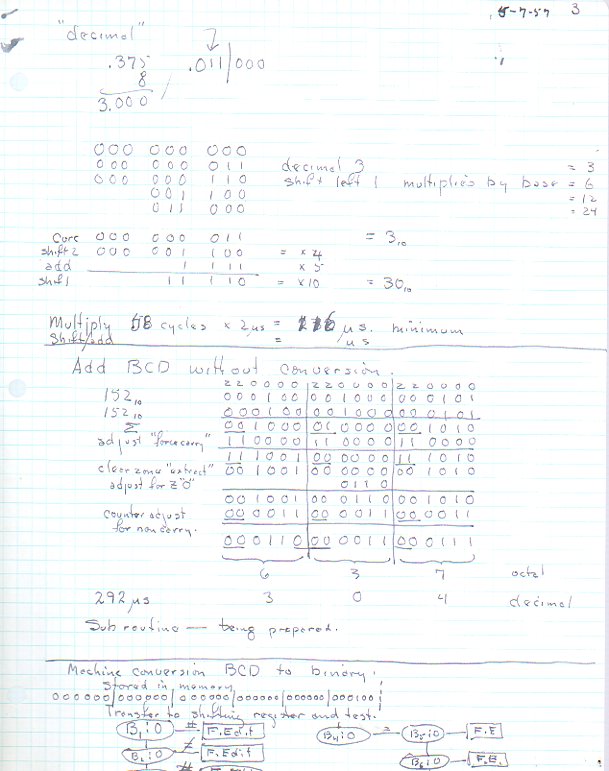 5-7-57 3
"decimal"
.375 .011|000
8
3.000
000 000 000
000 000 011 decimal 3 = 3
000 000 110 shift left 1 multiplies by base = 6
001 100 = 12
011 000 = 24
Core 000 000 011 = 3₁₀
shift 2 000 001 100 = x 4
add 1 111 x 5
shif 1 11 110 = x 10 = 30₁₀
Multiply 58 cycles x 2μs = μs. minimum
Shift/add = μs
Add BCD without conversion.
220000 220000 220000
152₁₀ 000100 001000 000101
152₁₀ 000100 001000 000101
Σ 001000 010000 001010
adjust "force carry" 110000 110000 110000
111001 000000 111010
clear zone "extract" 001001 000000 001010
adjust for Z "0" 0110
001001 000110 001010
counter adjust 000011 000011 000011
for non carry.
000110 000011 000111
6 3 7 octal
292 μs 3 0 4 decimal
Subroutine — being prepared.
Machine conversion BCD to binary.
Stored in memory
000000|000000|000000|000000|000000|000100|
Transfer to shifting register and test.
B₁:0 ≠ F.Edit B₄:0 = B₅:0 F.E
B₂:0 ≠ F.Edit B₆:0 F.E.